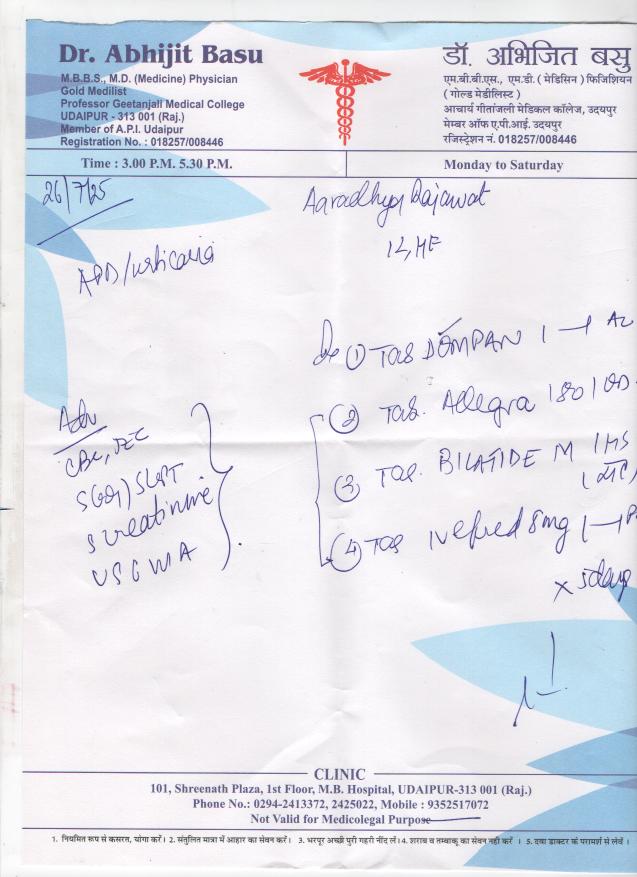 Dr. Abhijit Basu
M.B.B.S., M.D. (Medicine) Physician
Gold Medilist
Professor Geetanjali Medical College
UDAIPUR - 313 001 (Raj.)
Member of A.P.I. Udaipur
Registration No. : 018257/008446
डॉ. अभिजित बसु
एम.बी.बी.एस., एम.डी. ( मेडिसिन ) फिजिशियन
( गोल्ड मेडीलिस्ट )
आचार्य गीतांजली मेडिकल कॉलेज, उदयपुर
मेम्बर ऑफ ए.पी.आई. उदयपुर
रजिस्ट्रेशन नं. 018257/008446
Time : 3.00 P.M. 5.30 P.M.
Monday to Saturday
26/7/25
Aaradhya Rajawat
APD/urticaria
① Tab DOMPAN 1
② Tab. Allegra 180 1 OD
③ Tab. BILATIDE M 1 HS
④ Tab Nefred 8mg 1
x 5 days
Adv
CBC, DEC
SGOT SGPT
S creatinine
USG W/A
CLINIC
101, Shreenath Plaza, 1st Floor, M.B. Hospital, UDAIPUR-313 001 (Raj.)
Phone No.: 0294-2413372, 2425022, Mobile : 9352517072
Not Valid for Medicolegal Purpose
1. नियमित रूप से कसरत, योगा करें। 2. संतुलित मात्रा में आहार का सेवन करें। 3. भरपूर अच्छी पुरी गहरी नींद लें। 4. शराब व तम्बाकू का सेवन नही करें । 5. दवा डाक्टर के परामर्श से लेवें ।